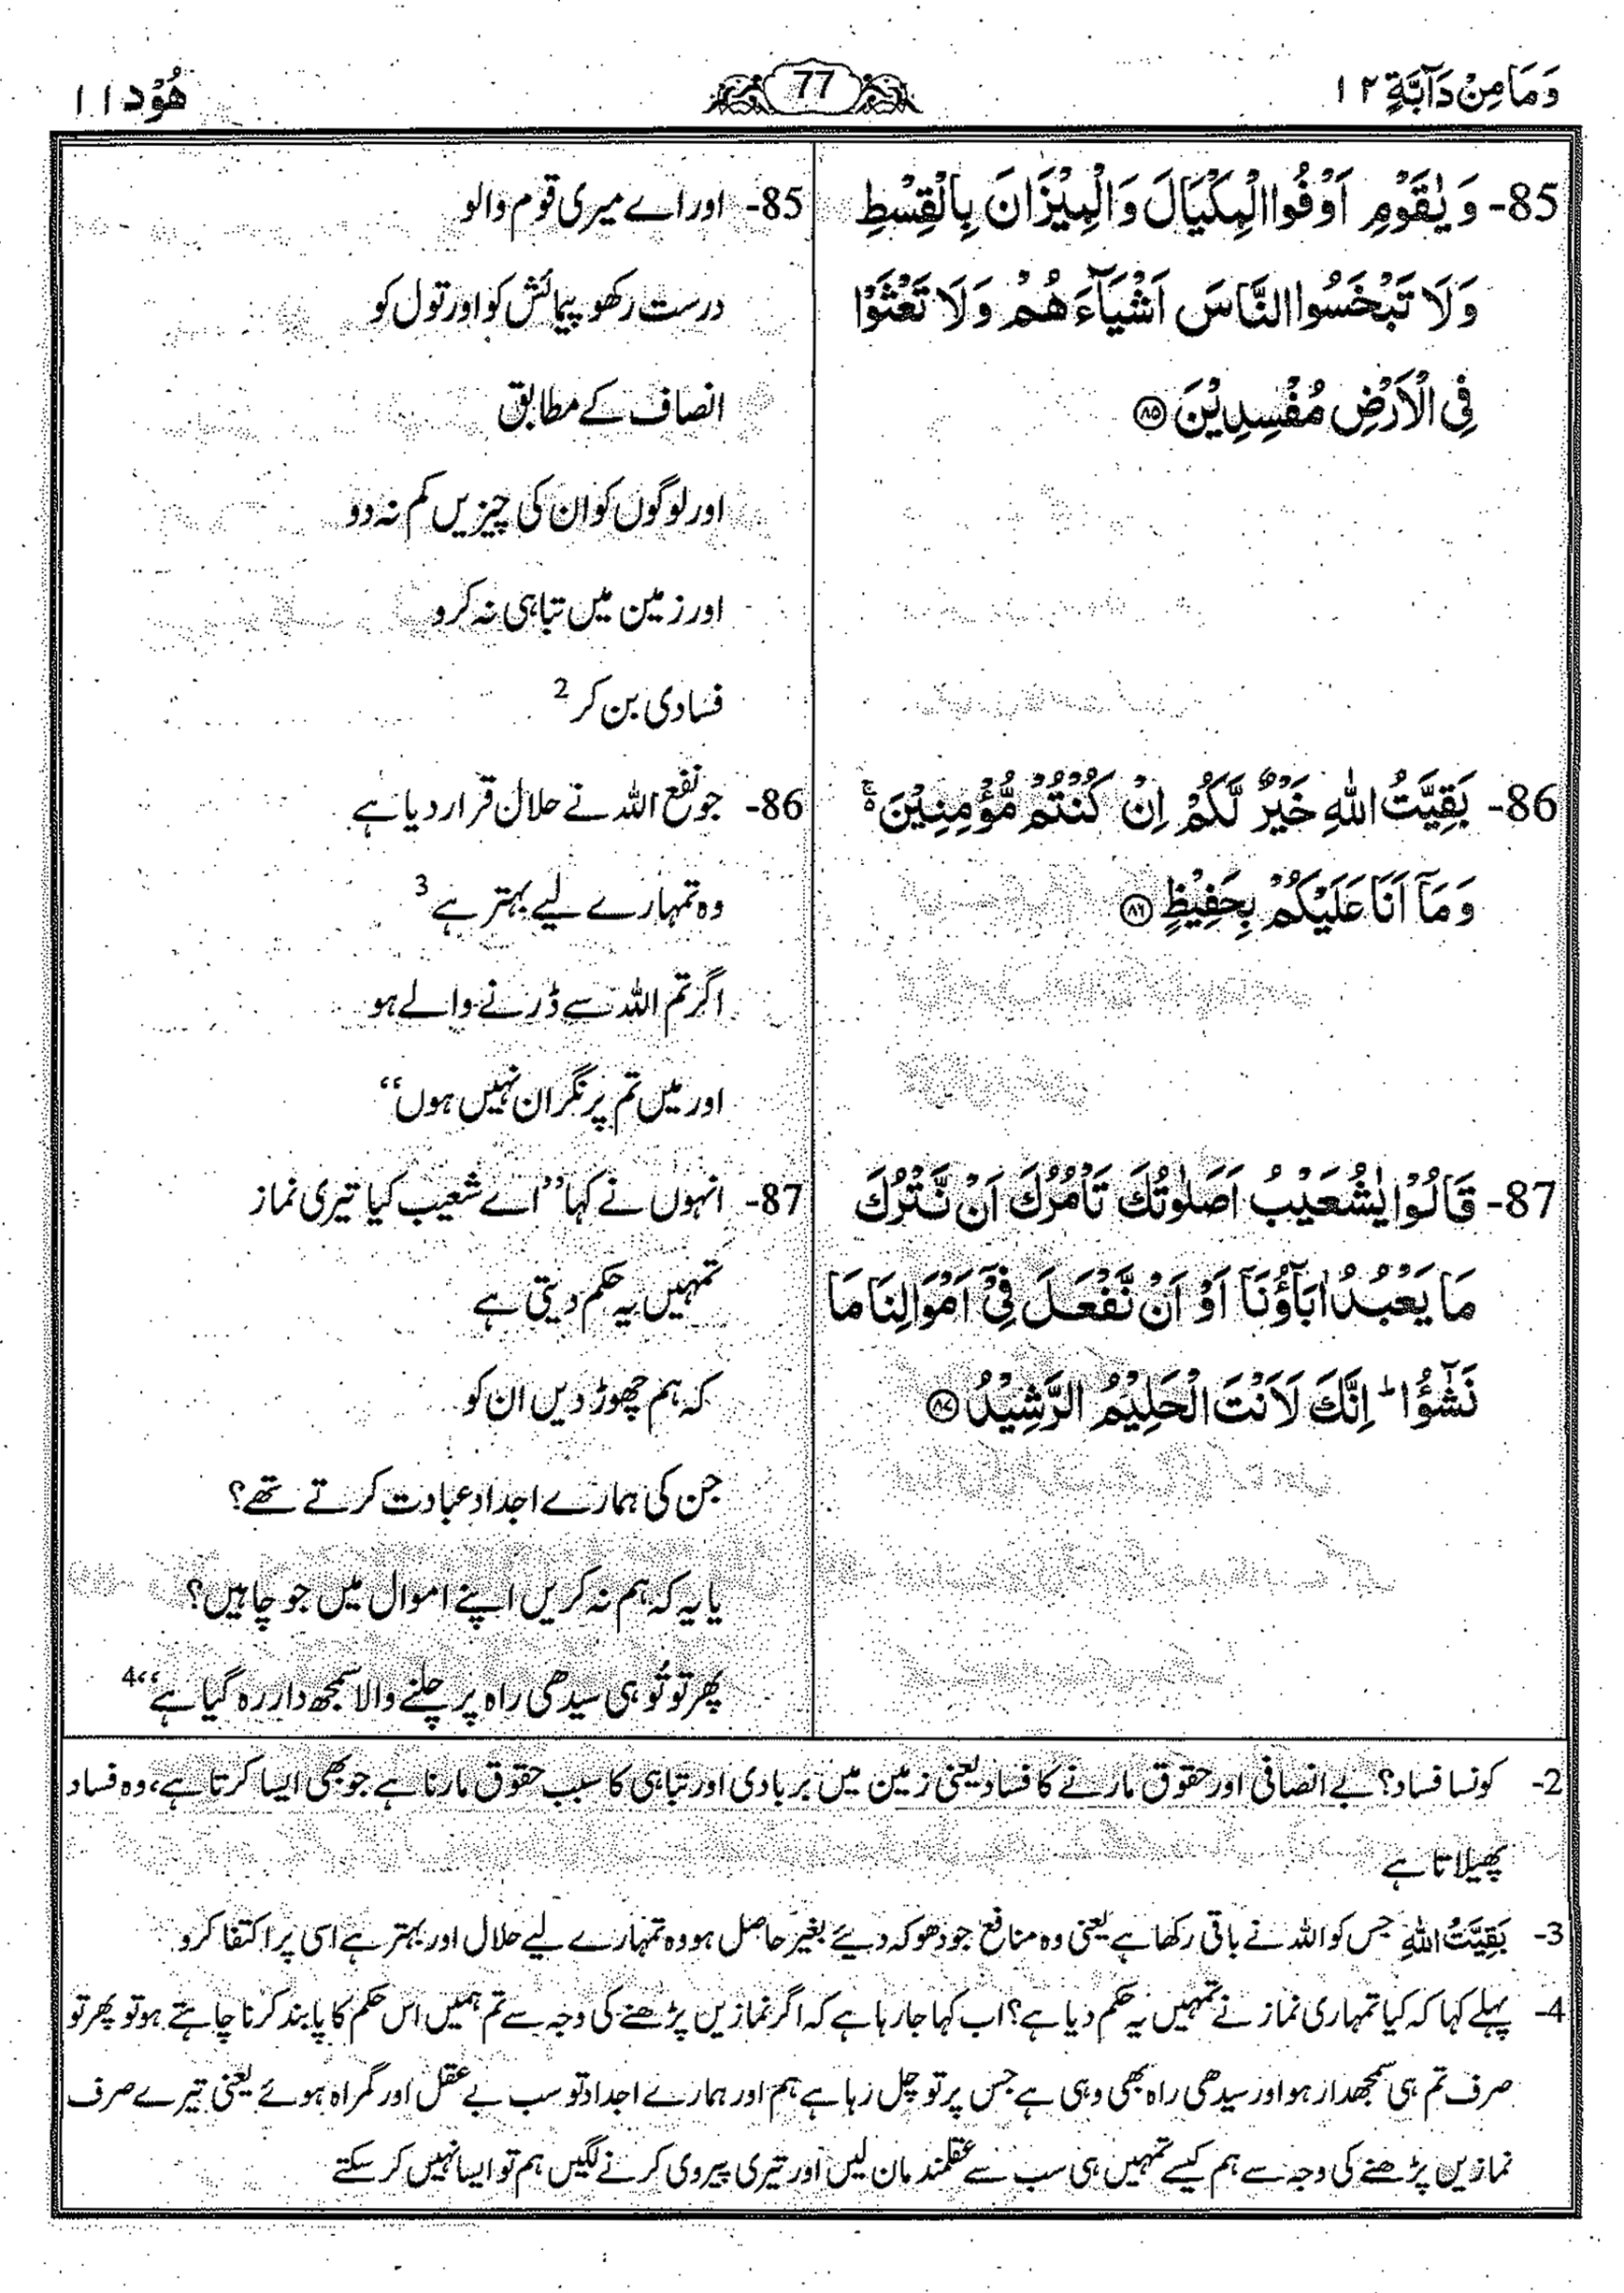 وَمَا مِنْ دَآبَّةٍ ۱۲
77
هُوْد ۱۱
85- وَ یٰقَوْمِ اَوْفُوا الْمِكْیَالَ وَ الْمِیْزَانَ بِالْقِسْطِ
وَ لَا تَبْخَسُوا النَّاسَ اَشْیَآءَهُمْ وَ لَا تَعْثَوْا
فِی الْاَرْضِ مُفْسِدِیْنَ ﴿۸۵﴾
86- بَقِیَّتُ اللّٰهِ خَیْرٌ لَّكُمْ اِنْ كُنْتُمْ مُّؤْمِنِیْنَ ۚ۬
وَ مَاۤ اَنَا عَلَیْكُمْ بِحَفِیْظٍ ﴿۸۶﴾
87- قَالُوْا یٰشُعَیْبُ اَصَلٰوتُكَ تَاْمُرُكَ اَنْ نَّتْرُكَ
مَا یَعْبُدُ اٰبَآؤُنَاۤ اَوْ اَنْ نَّفْعَلَ فِیْۤ اَمْوَالِنَا مَا
نَشٰٓؤُا ؕ اِنَّكَ لَاَنْتَ الْحَلِیْمُ الرَّشِیْدُ ﴿۸۷﴾
85- اور اے میری قوم والو
درست رکھو پیمائش کو اور تول کو
انصاف کے مطابق
اور لوگوں کو ان کی چیزیں کم نہ دو
اور زمین میں تباہی نہ کرو
فسادی بن کر 2
86- جو نفع اللہ نے حلال قرار دیا ہے
وہ تمہارے لیے بہتر ہے 3
اگر تم اللہ سے ڈرنے والے ہو
اور میں تم پر نگران نہیں ہوں“
87- انہوں نے کہا ”اے شعیب کیا تیری نماز
تمہیں یہ حکم دیتی ہے
کہ ہم چھوڑ دیں ان کو
جن کی ہمارے اجداد عبادت کرتے تھے؟
یا یہ کہ ہم نہ کریں اپنے اموال میں جو چاہیں؟
پھر تو تُو ہی سیدھی راہ پر چلنے والا سمجھ دار رہ گیا ہے“ 4
2- کونسا فساد؟ بے انصافی اور حقوق مارنے کا فساد یعنی زمین میں بربادی اور تباہی کا سبب حقوق مارنا ہے جو بھی ایسا کرتا ہے، وہ فساد
پھیلاتا ہے
3- بَقِیَّتُ اللّٰهِ جس کو اللہ نے باقی رکھا ہے یعنی وہ منافع جو دھوکہ دیئے بغیر حاصل ہو وہ تمہارے لیے حلال اور بہتر ہے اسی پر اکتفا کرو
4- پہلے کہا کہ کیا تمہاری نماز نے تمہیں یہ حکم دیا ہے؟ اب کہا جا رہا ہے کہ اگر نمازیں پڑھنے کی وجہ سے تم ہمیں اس حکم کا پابند کرنا چاہتے ہو تو پھر تو
صرف تم ہی سمجھدار ہو اور سیدھی راہ بھی وہی ہے جس پر تو چل رہا ہے ہم اور ہمارے اجداد تو سب بے عقل اور گمراہ ہوئے یعنی تیرے صرف
نمازیں پڑھنے کی وجہ سے ہم کیسے تمہیں ہی سب سے عقلمند مان لیں اور تیری پیروی کرنے لگیں ہم تو ایسا نہیں کر سکتے